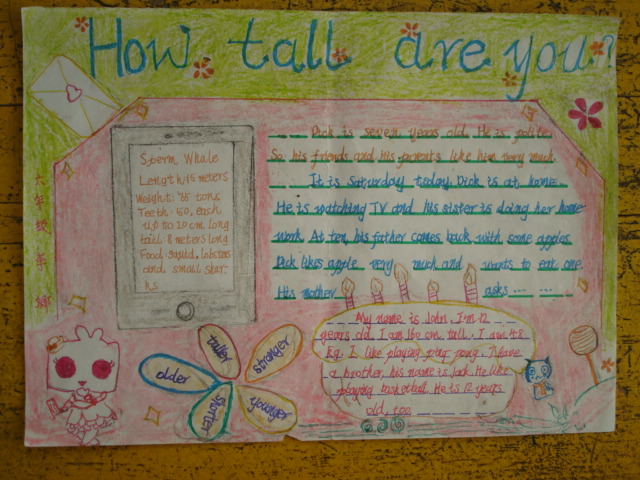 How tall are you?
六年级
Sperm Whale
Length: 15 meters
Weight: 35 tons
Teeth: 50, each
up to 20 cm long
tail: 8 meters long
Food: squid, lobsters
and small shar-
ks
Dick is seven years old. He is polite.
So his friends and his parents like him very much.
It is Saturday today. Dick is at home.
He is watching TV and his sister is doing her home-
work. At ten, his father comes back with some apples.
Dick likes apple very much and wants to eat one.
His mother asks ... ...
My name is John. I'm 12
years old. I am 160 cm tall. I am 48
kg. I like playing ping pong. I have
a brother, his name is Jack. He like
playing basketball. He is 12 years
old, too.
taller
stronger
older
shorter
younger